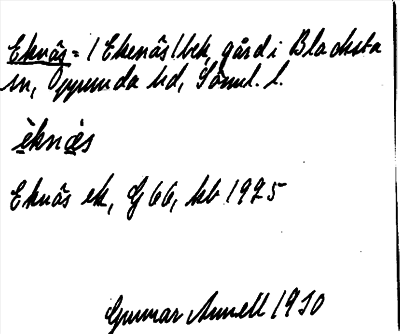 Eknäs = / Ekenäs / bek, gård i Blacksta
sn, Oppunda hd, Söml. l.
èknä̀s
Eknäs ek, G 66, kb 1925
Gunnar Annell 1930